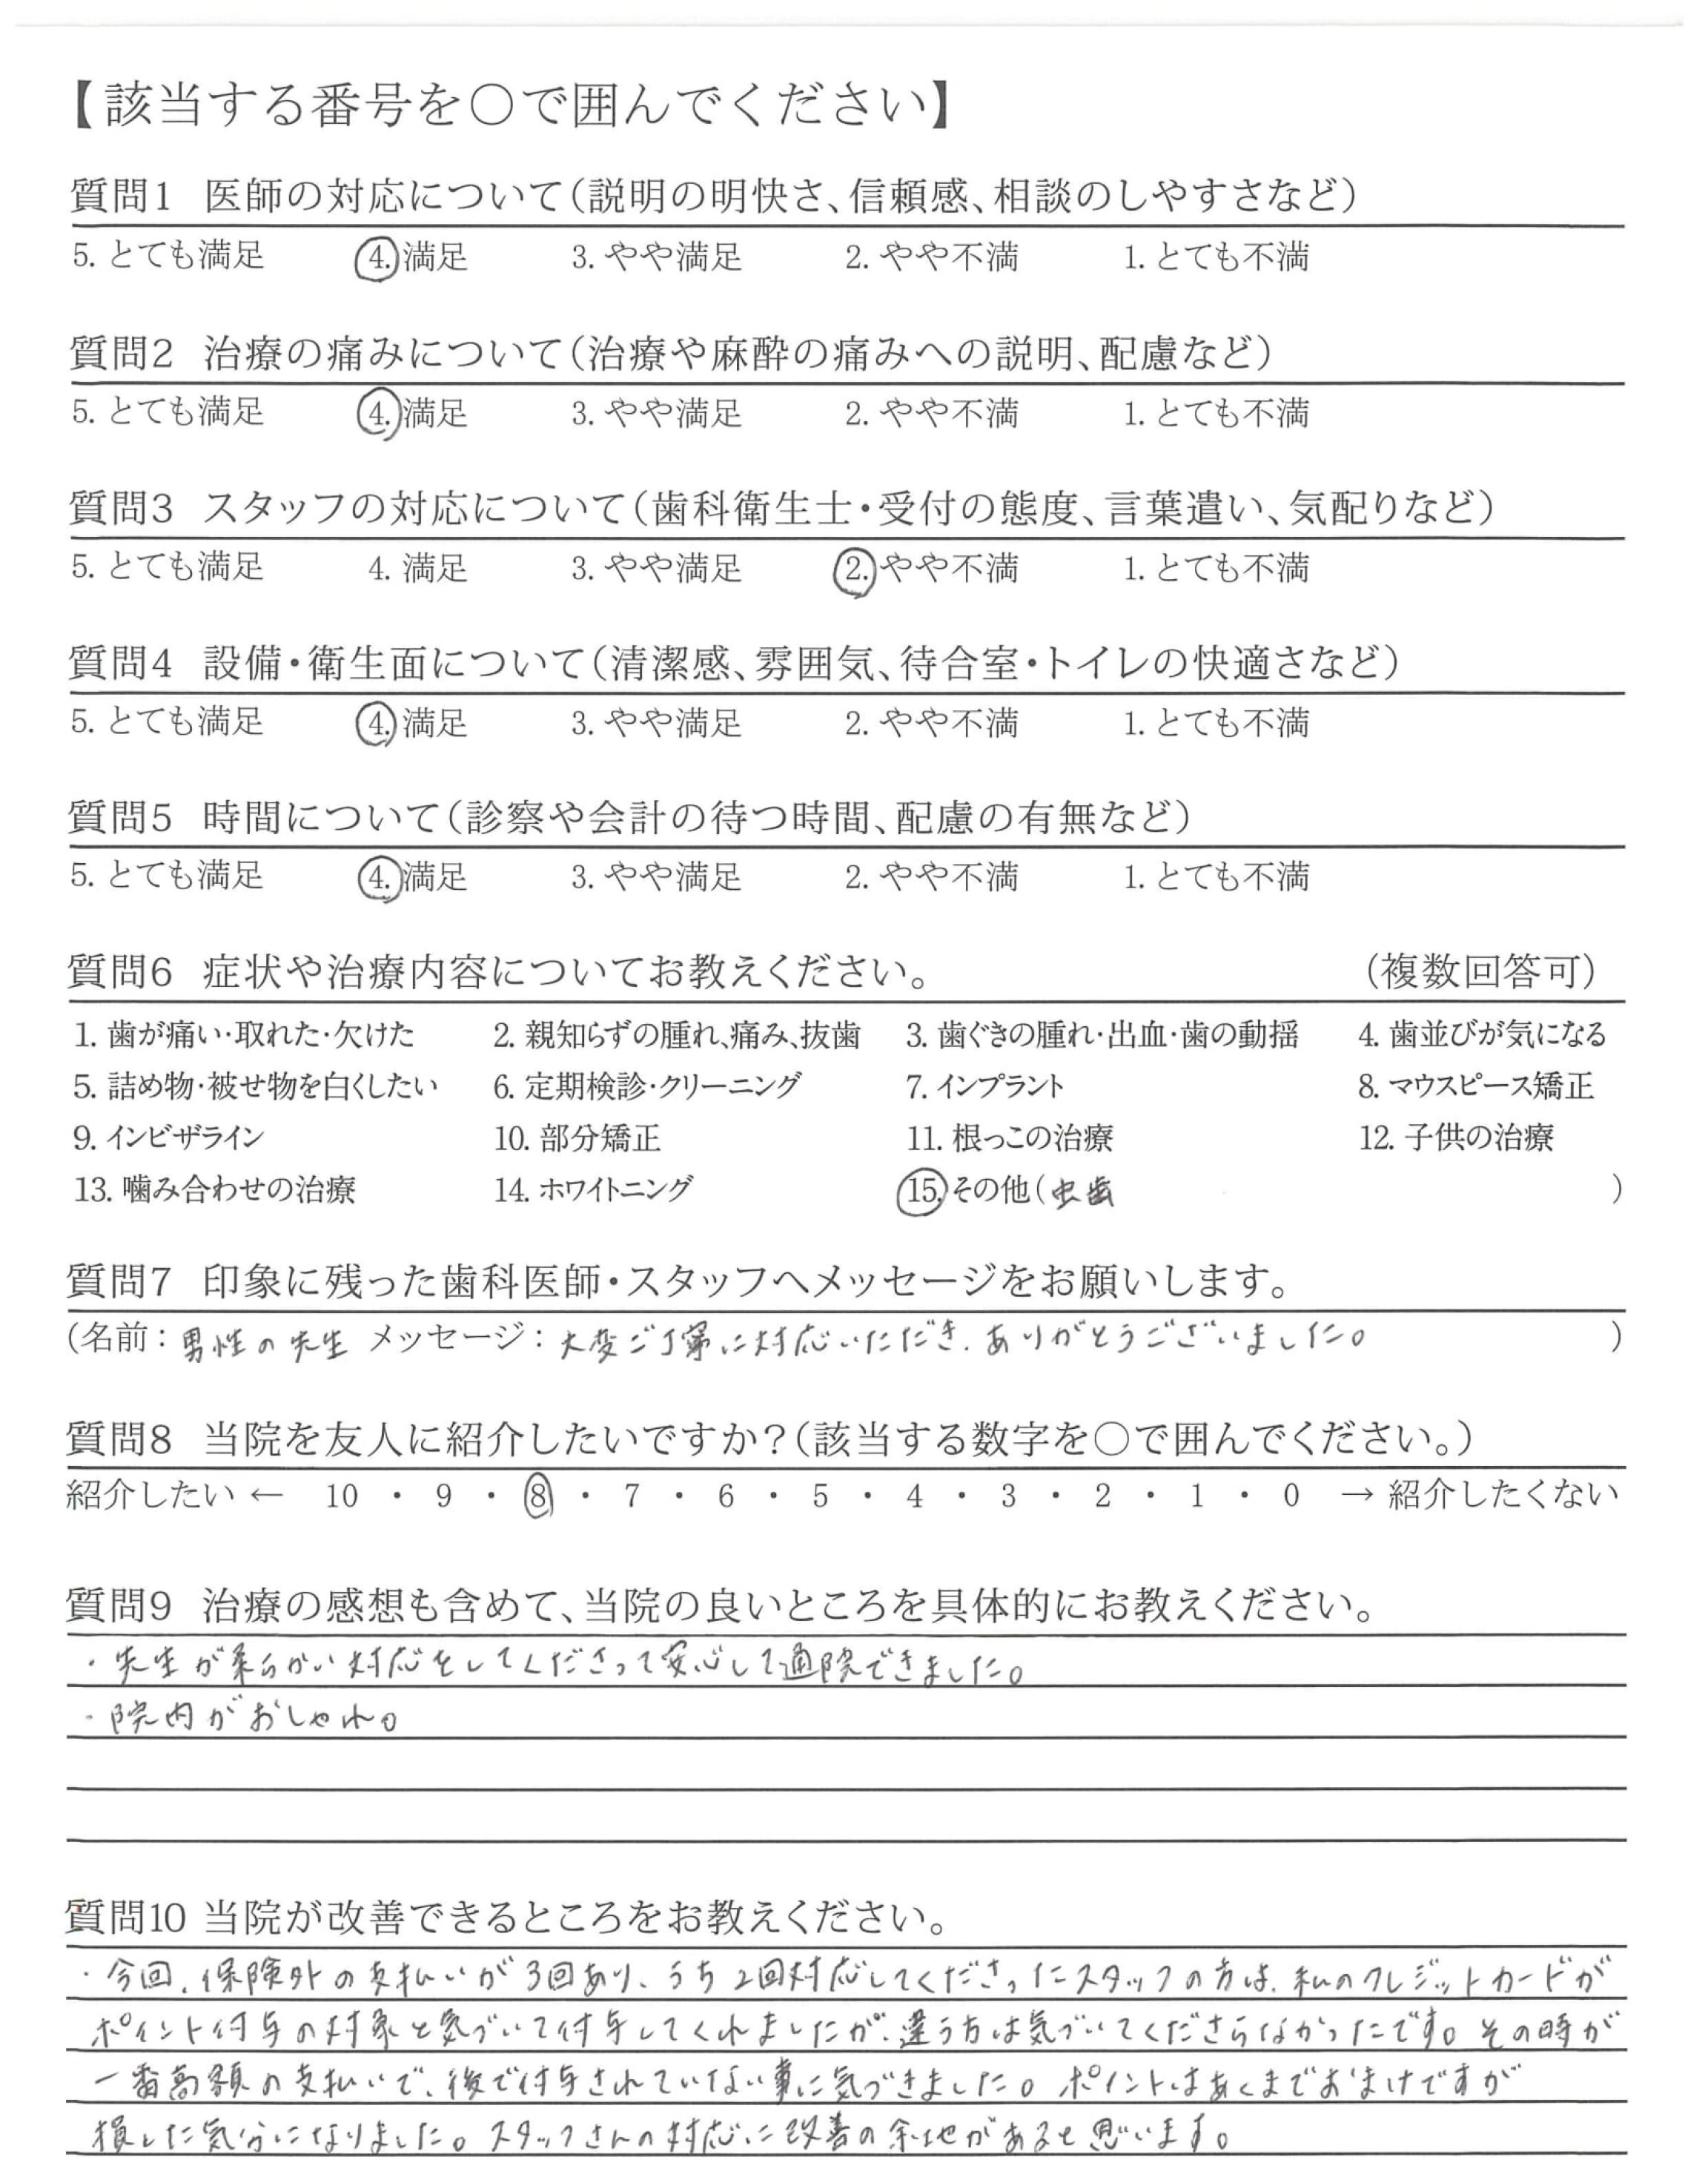 【該当する番号を○で囲んでください】
質問1 医師の対応について(説明の明快さ、信頼感、相談のしやすさなど)
5. とても満足 4. 満足 3. やや満足 2. やや不満 1. とても不満
質問2 治療の痛みについて(治療や麻酔の痛みへの説明、配慮など)
5. とても満足 4. 満足 3. やや満足 2. やや不満 1. とても不満
質問3 スタッフの対応について(歯科衛生士・受付の態度、言葉遣い、気配りなど)
5. とても満足 4. 満足 3. やや満足 2. やや不満 1. とても不満
質問4 設備・衛生面について(清潔感、雰囲気、待合室・トイレの快適さなど)
5. とても満足 4. 満足 3. やや満足 2. やや不満 1. とても不満
質問5 時間について(診察や会計の待つ時間、配慮の有無など)
5. とても満足 4. 満足 3. やや満足 2. やや不満 1. とても不満
質問6 症状や治療内容についてお教えください。 (複数回答可)
1. 歯が痛い・取れた・欠けた 2. 親知らずの腫れ、痛み、抜歯 3. 歯ぐきの腫れ・出血・歯の動揺 4. 歯並びが気になる
5. 詰め物・被せ物を白くしたい 6. 定期検診・クリーニング 7. インプラント 8. マウスピース矯正
9. インビザライン 10. 部分矯正 11. 根っこの治療 12. 子供の治療
13. 噛み合わせの治療 14. ホワイトニング 15. その他(虫歯 )
質問7 印象に残った歯科医師・スタッフへメッセージをお願いします。
(名前:男性の先生 メッセージ:大変ご丁寧に対応いただき、ありがとうございました。 )
質問8 当院を友人に紹介したいですか?(該当する数字を○で囲んでください。)
紹介したい ← 10 ・ 9 ・ 8 ・ 7 ・ 6 ・ 5 ・ 4 ・ 3 ・ 2 ・ 1 ・ 0 → 紹介したくない
質問9 治療の感想も含めて、当院の良いところを具体的にお教えください。
・先生が柔らかい対応をしてくださって安心して通院できました。
・院内がおしゃれ。
質問10 当院が改善できるところをお教えください。
・今回、保険外の支払いが3回あり、うち2回対応してくださったスタッフの方は、私のクレジットカードが
ポイント付与の対象と気づいて付与してくれましたが、違う方は気づいてくださらなかったです。その時が
一番高額の支払いで、後で付与されていない事に気づきました。ポイントはあくまでおまけですが
損した気分になりました。スタッフさんの対応に改善の余地があると思います。